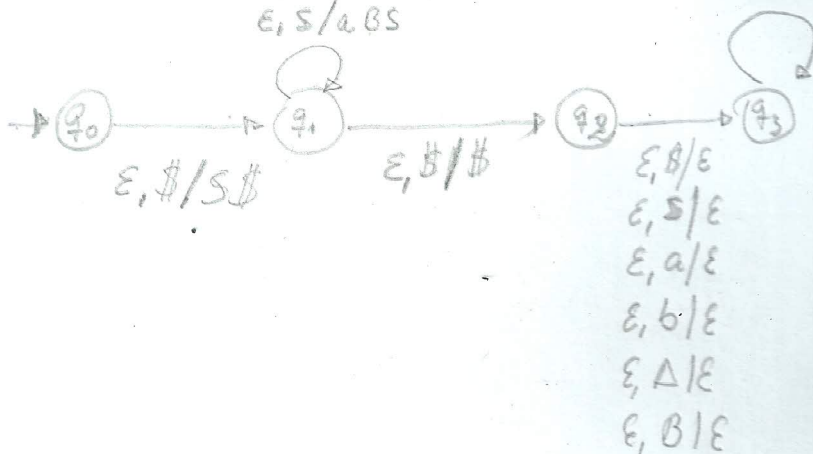 ε, S/aBS
q₀
q₁
q₂
q₃
ε, $/S$
ε, $/$
ε, $/ε
ε, S/ε
ε, a/ε
ε, b/ε
ε, A/ε
ε, B/ε